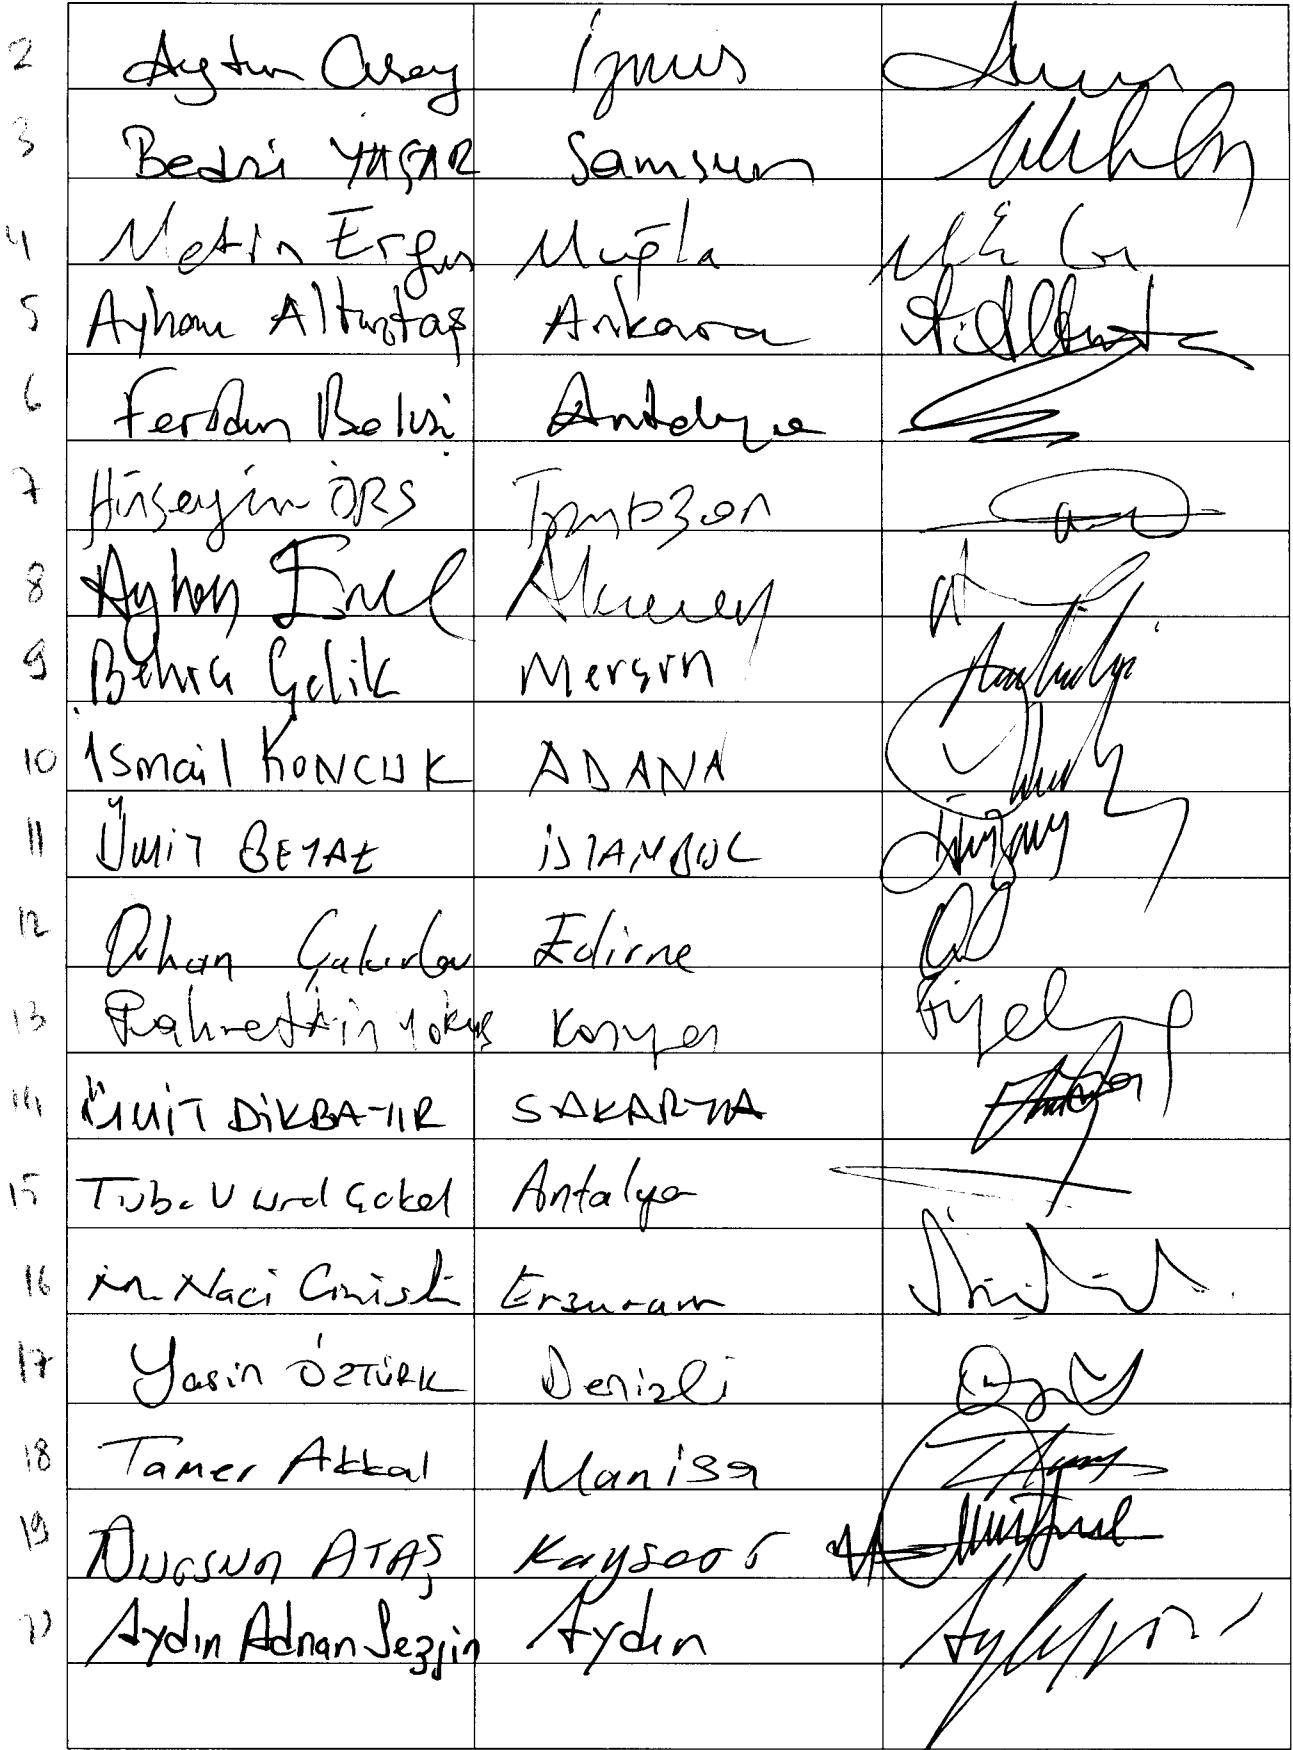 2 Aytun Çıray İzmir
3 Bedri YAŞAR Samsun
4 Metin Ergun Muğla
5 Ayhan Altıntaş Ankara
6 Feridun Bahşi Antalya
7 Hüseyin ÖRS Trabzon
8 Ayhan Erel Aksaray
9 Behiç Çelik Mersin
10 İsmail KONCUK ADANA
11 ÜMİT BEYAZ İSTANBUL
12 Orhan Çakırlar Edirne
13 Fahrettin Yokuş Konya
14 ÜMİT DİKBAYIR SAKARYA
15 Tuba Vural Çokal Antalya
16 M. Naci Cinisli Erzurum
17 Yasin ÖZTÜRK Denizli
18 Tamer Akkal Manisa
19 DURSUN ATAŞ Kayseri
20 Aydın Adnan Sezgin Aydın